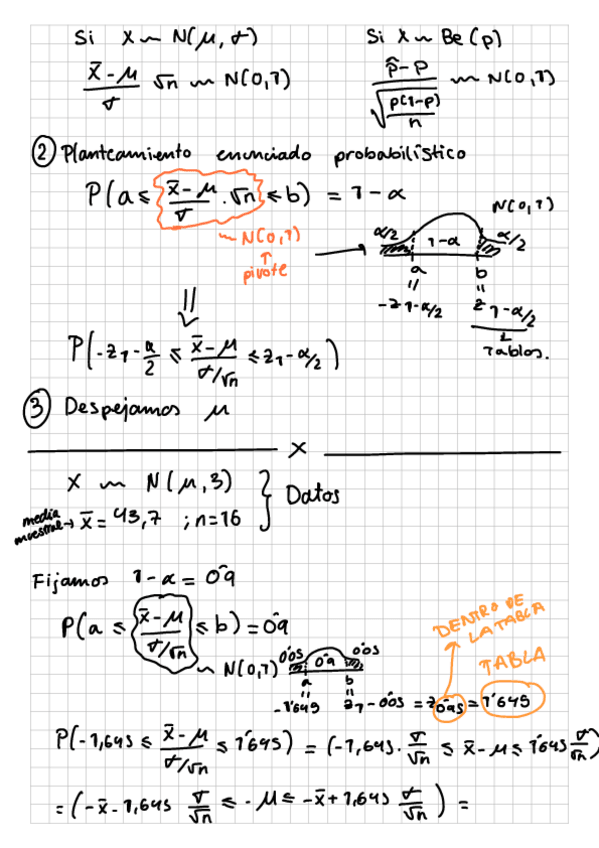 Si X ~ N(μ, σ)
Si X ~ Be(p)
(x̄ - μ)/σ √n ~ N(0,1)
(p̂ - p)/√(p(1-p)/n) ~ N(0,1)
② Planteamiento enunciado probabilístico
P(a ≤ (x̄ - μ)/σ · √n ≤ b) = 1 - α
~ N(0,1)
↑
pivote
N(0,1)
α/2 1-α α/2
a b
= =
-z 1-α/2 z 1-α/2
Tablas.
P(-z 1-α/2 ≤ (x̄ - μ)/(σ/√n) ≤ z 1-α/2)
③ Despejamos μ
X
X ~ N(μ, 3)
media muestral → x̄ = 43,7 ; n=16
} Datos
Fijamos 1 - α = 0'9
P(a ≤ (x̄ - μ)/(σ/√n) ≤ b) = 0'9
~ N(0,1)
0'05 0'9 0'05
a b
= =
-1'645 z 1-0'05 = z 0'95 = 1'645
DENTRO DE
LA TABLA
TABLA
P(-1,645 ≤ (x̄ - μ)/(σ/√n) ≤ 1'645) = (-1,645 · σ/√n ≤ x̄ - μ ≤ 1'645 σ/√n)
= (-x̄ - 1,645 σ/√n ≤ -μ ≤ -x̄ + 1,645 σ/√n) =